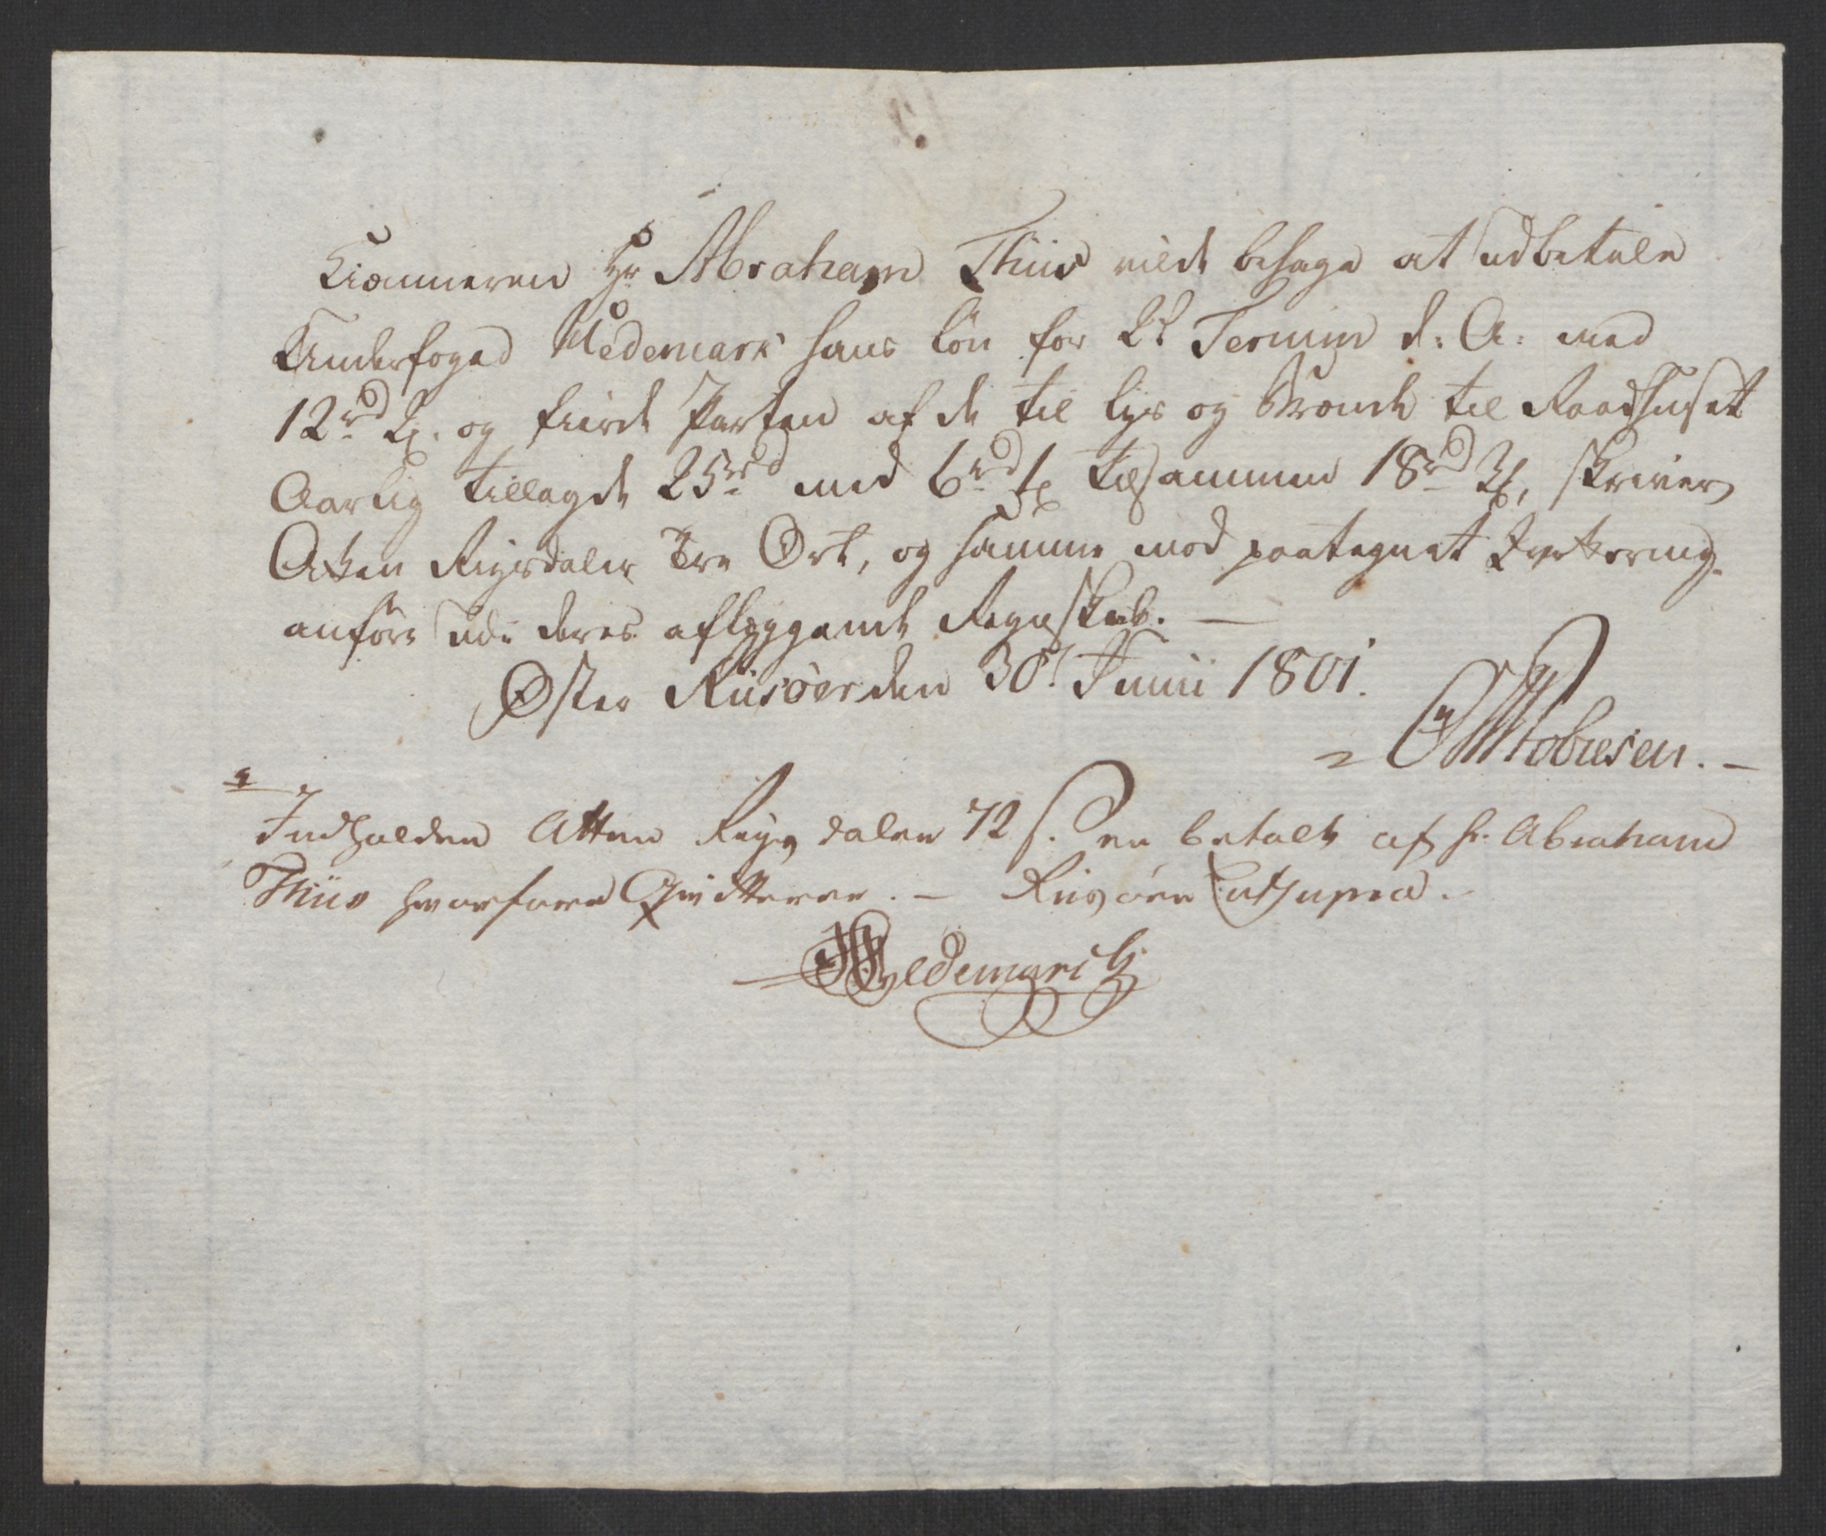 Kiæmneren Hr Abraham Thiis vilde behage at udbetale
Underfoged Hedemark hans Lön for 2d Termin d: A: med
12rd og fierde Parten af de til Lys og Brænde til Raadhuset
Aarlig tillagde 25rd med 6rd 1 tilsammen 18rd 3, skriver
Atten Rigsdaler Tre Ort, og samme mod paategnet Qvittering
anföre udi deres aflæggende Regnskab. —
Öster Riisöer den 30t Junii 1801.
Tobiesen. —
Indholden Atten Rigsdaler 72 s. er betalt af Hr. Abraham
Thiis hvorfore Qvitterer. — Riisöer ut supra.
Hedemarck